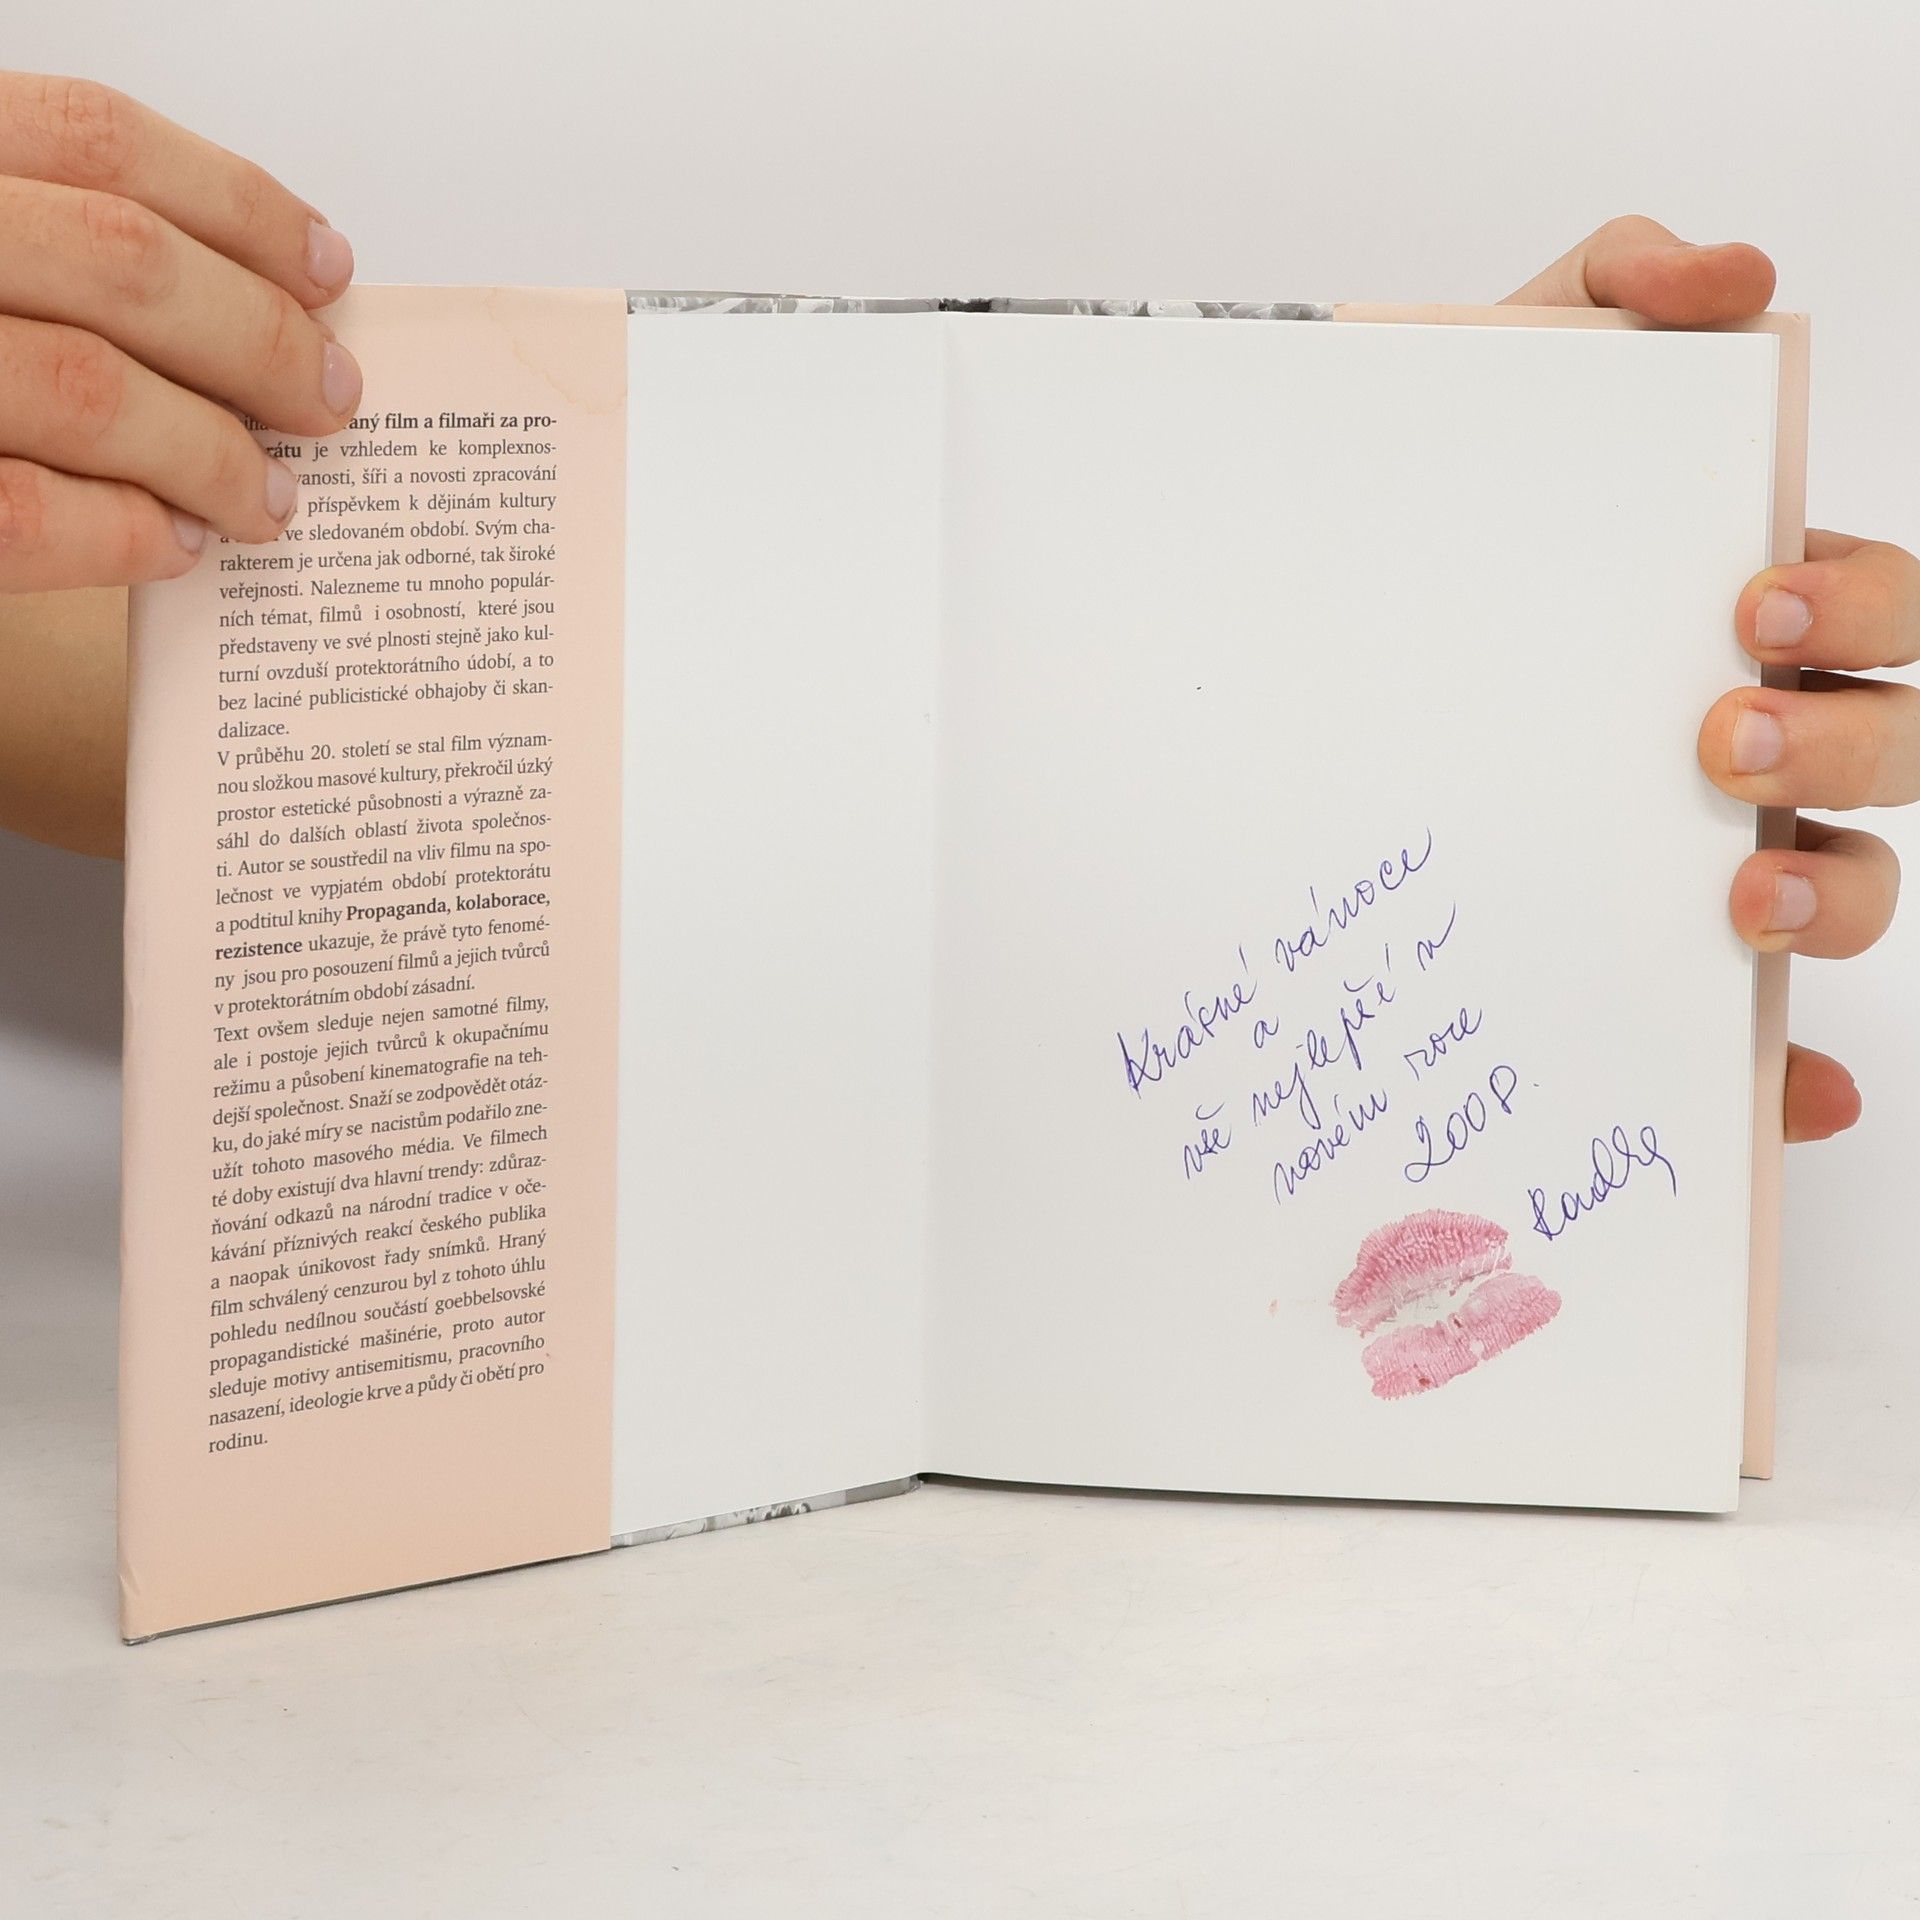 aný film a filmaři za pro-
rátu je vzhledem ke komplexnos-
vanosti, šíři a novosti zpracování
příspěvkem k dějinám kultury
a ve sledovaném období. Svým cha-
rakterem je určena jak odborné, tak široké
veřejnosti. Nalezneme tu mnoho populár-
ních témat, filmů i osobností, které jsou
představeny ve své plnosti stejně jako kul-
turní ovzduší protektorátního údobí, a to
bez laciné publicistické obhajoby či skan-
dalizace.
V průběhu 20. století se stal film význam-
nou složkou masové kultury, překročil úzký
prostor estetické působnosti a výrazně za-
sáhl do dalších oblastí života společnos-
ti. Autor se soustředil na vliv filmu na spo-
lečnost ve vypjatém období protektorátu
a podtitul knihy Propaganda, kolaborace,
rezistence ukazuje, že právě tyto fenomé-
ny jsou pro posouzení filmů a jejich tvůrců
v protektorátním období zásadní.
Text ovšem sleduje nejen samotné filmy,
ale i postoje jejich tvůrců k okupačnímu
režimu a působení kinematografie na teh-
dejší společnost. Snaží se zodpovědět otáz-
ku, do jaké míry se nacistům podařilo zne-
užít tohoto masového média. Ve filmech
té doby existují dva hlavní trendy: zdůraz-
ňování odkazů na národní tradice v oče-
kávání příznivých reakcí českého publika
a naopak únikovost řady snímků. Hraný
film schválený cenzurou byl z tohoto úhlu
pohledu nedílnou součástí goebbelsovské
propagandistické mašinérie, proto autor
sleduje motivy antisemitismu, pracovního
nasazení, ideologie krve a půdy či obětí pro
rodinu.
Krásné vánoce
a
vše nejlepší v
novém roce
2008.
Radka